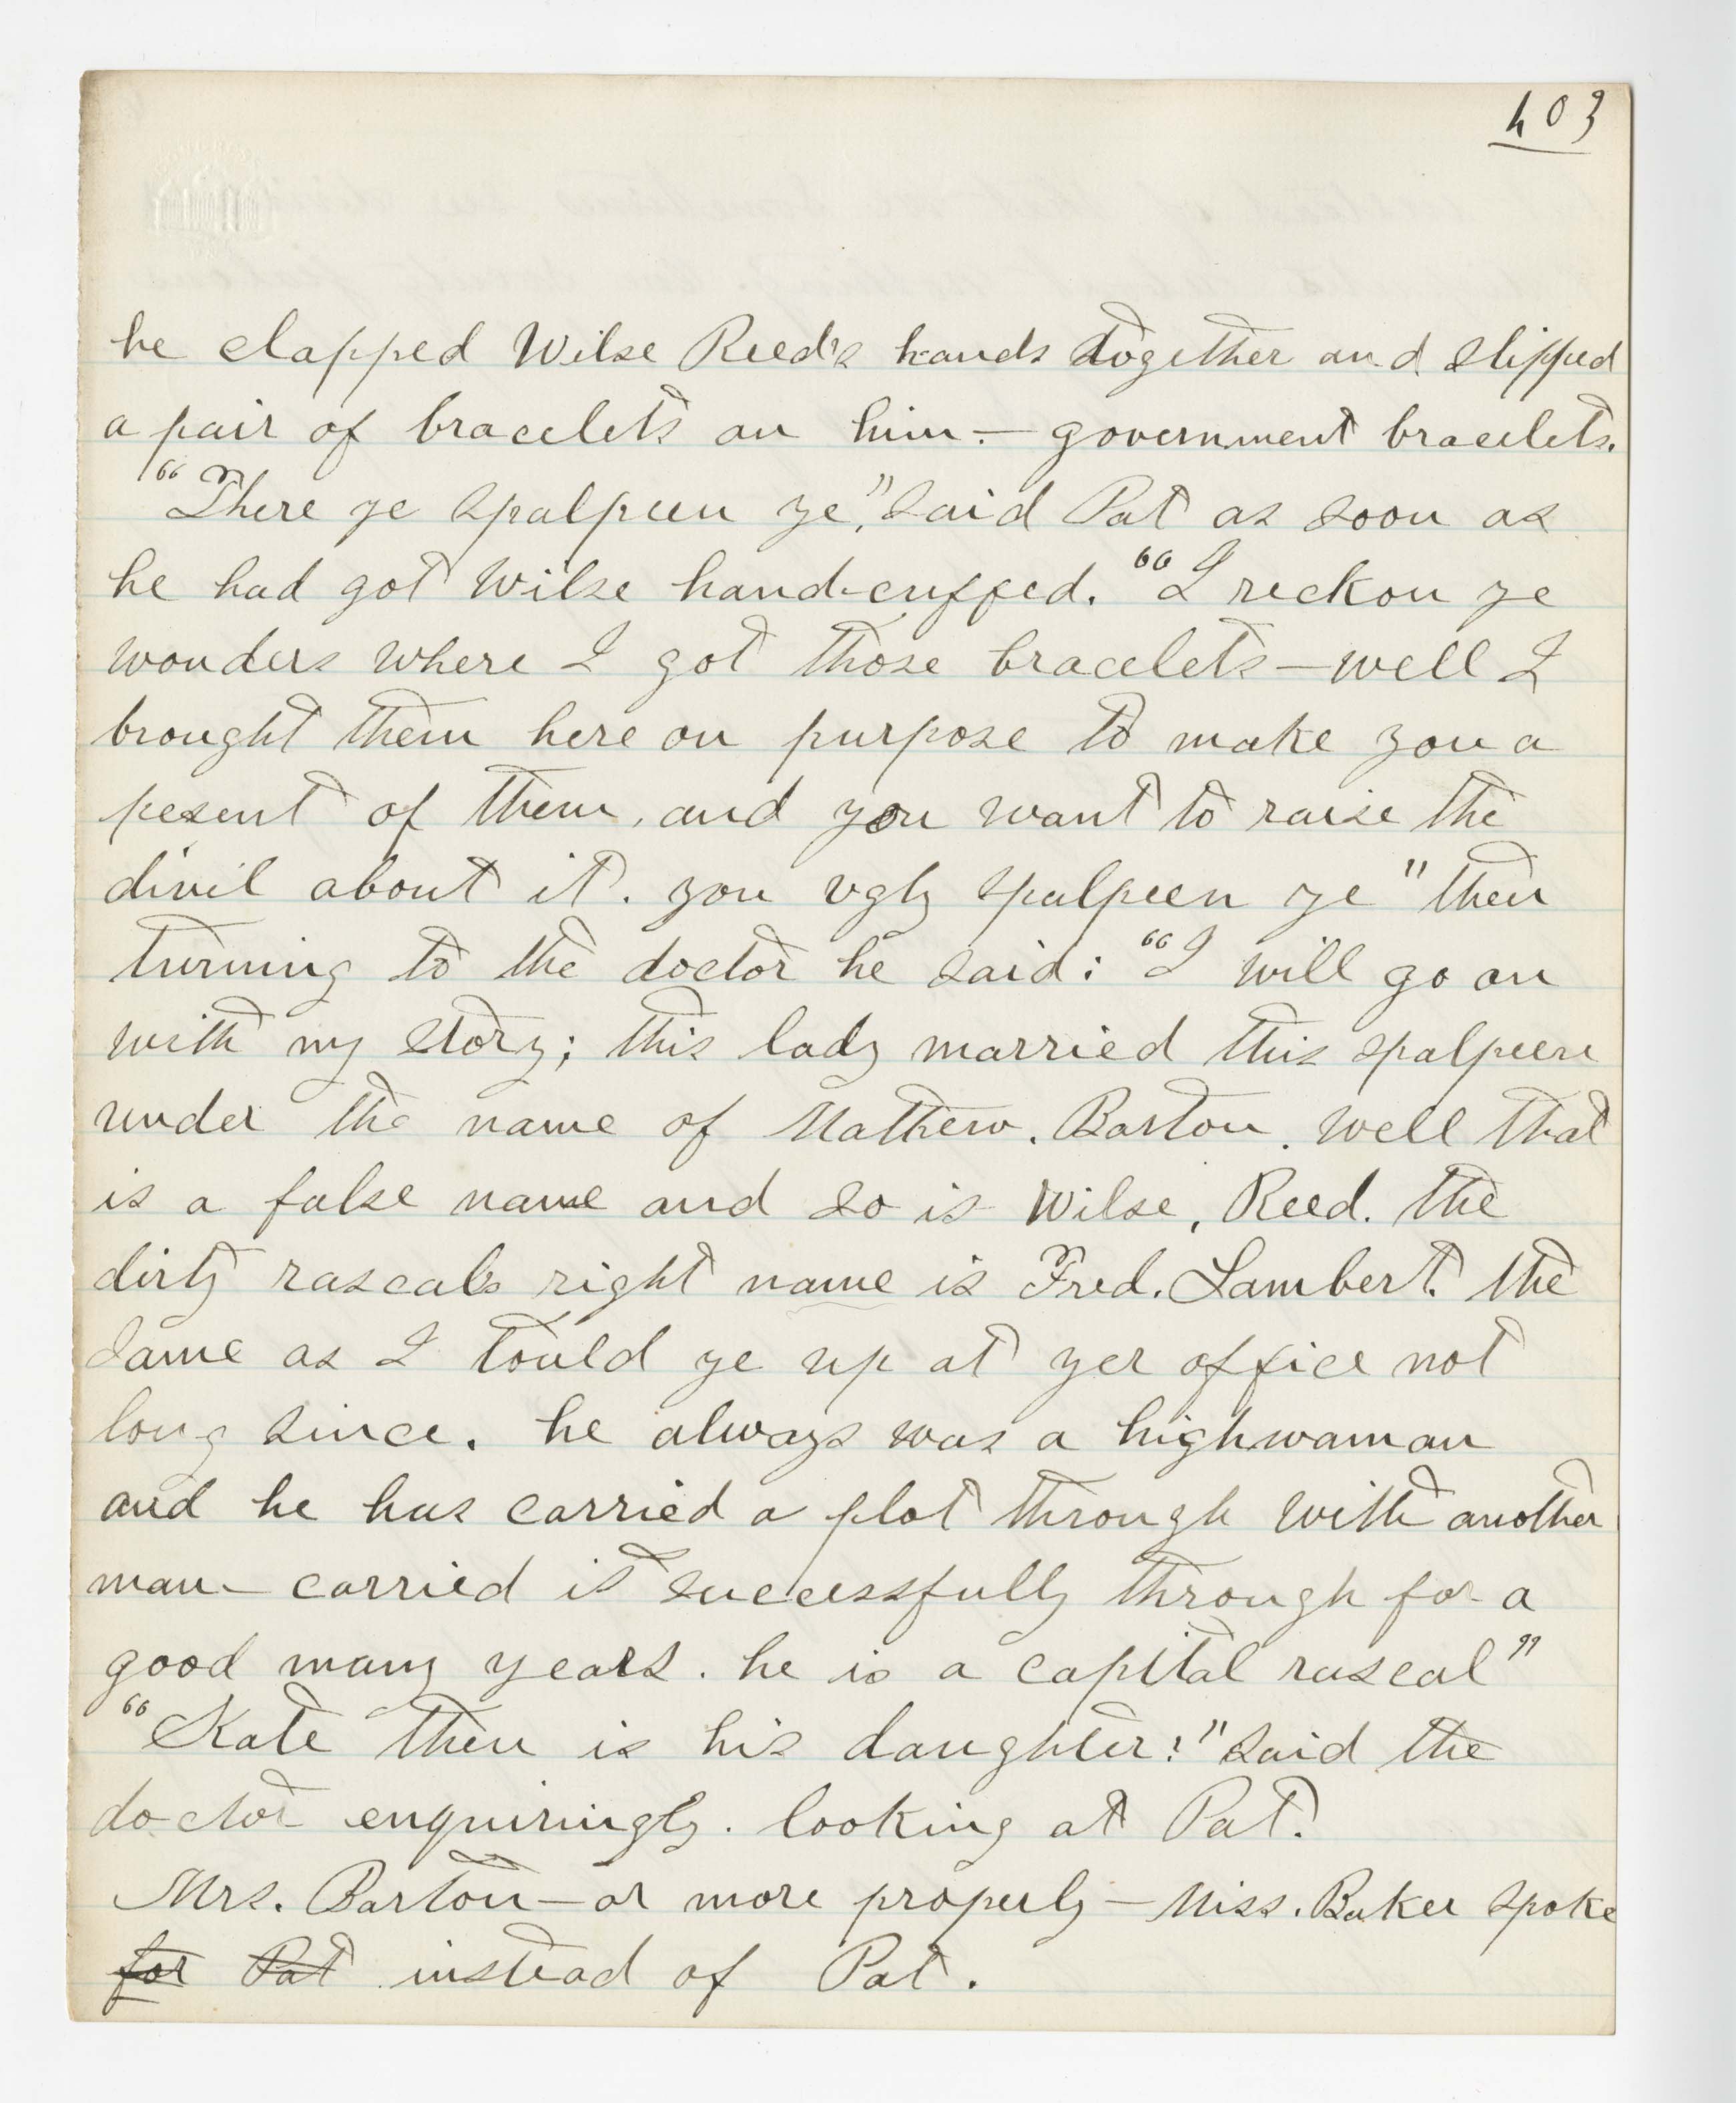 403
he clapped Wilse Reed's hands together and slipped
a pair of bracelets on him — government bracelets.
"There ye spalpeen ye," said Pat as soon as
he had got Wilse hand-cuffed. "I reckon ye
wonders where I got those bracelets — well I
brought them here on purpose to make you a
pesent of them, and you want to raise the
divil about it. you ugly spalpeen ye" then
turning to the doctor he said: "I will go on
with my story; this lady married this spalpeen
under the name of Mathew. Barton. well that
is a false name and so is Wilse, Reed. the
dirty rascals right name is Fred. Lambert. the
same as I tould ye up at yer office not
long since. he always was a highwaman
and he has carried a plot through with another
man — carried it successfully through for a
good many years. he is a capital rascal"
"Kate then is his daughter?" said the
doctor enquiringly. looking at Pat.
Mrs. Barton — or more properly — Miss. Baker spoke
for Pat instead of Pat.